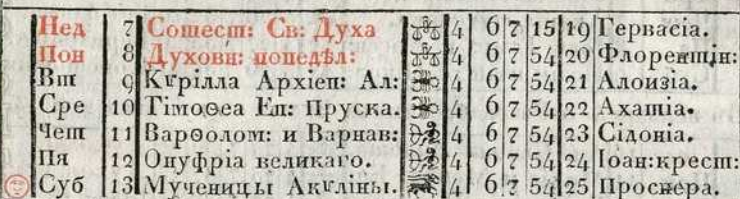 Нед 7 Сошест: Св: Духа 4 6 7 15 19 Гервасіа.
Пон 8 Духовн: понедѣл: 4 6 7 54 20 Флорентін:
Вт 9 Кѵрілла Архіеп: Ал: 4 6 7 54 21 Алоизіа.
Сре 10 Тімоѳеа Еп: Пруска. 4 6 7 54 22 Ахатіа.
Чет 11 Варѳолом: и Варнав: 4 6 7 54 23 Сідоніа.
Пя 12 Онуфріа великаго. 4 6 7 54 24 Іоан:крест:
Суб 13 Мученицы Акѵліны. 4 6 7 54 25 Проспера.